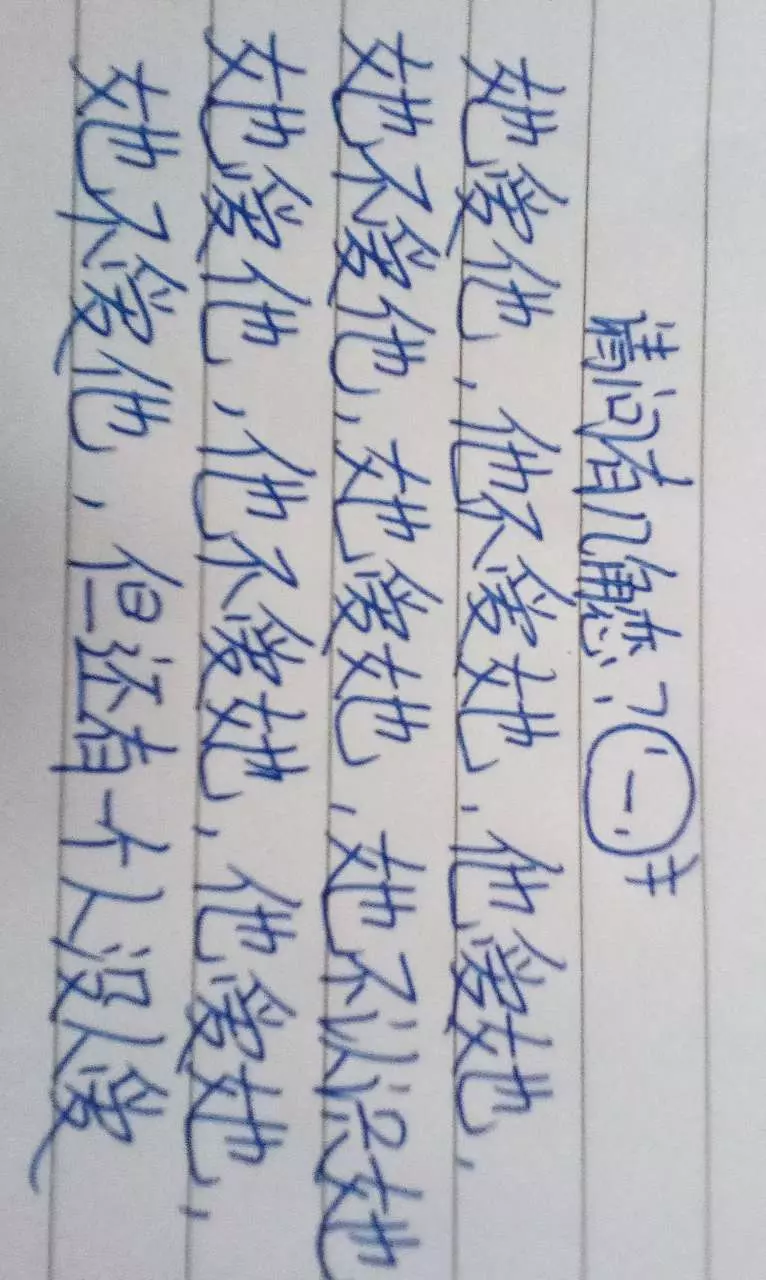 请问有几角恋?
她爱他,他不爱她,他爱她,
她不爱他,她爱她,她不认识她
她爱他,他不爱她,他爱她,
她不爱他,但还有一个人没人爱